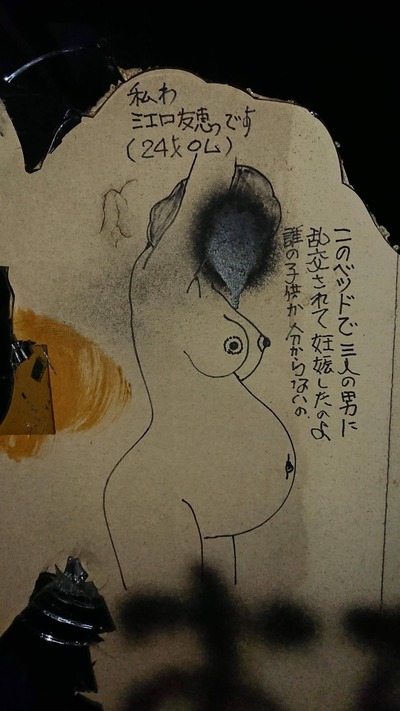 私わ
江口友恵っです
(24才
このベッドで三人の男に
乱交されて妊娠したのよ
誰の子供か分からないの